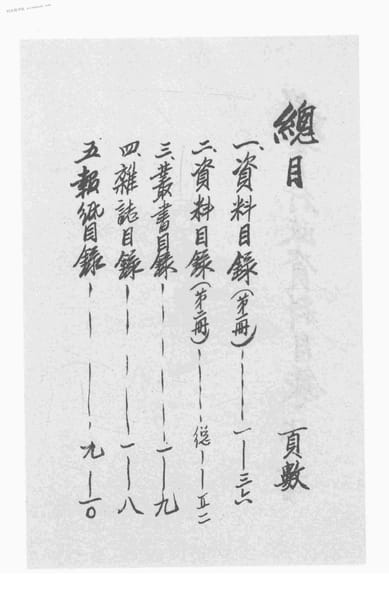 總目　頁數
一、資料目錄(第一冊)———一—三六
二、資料目錄(第二冊)———一—五二
三、叢書目錄———一—九
四、雜誌目錄———一—八
五、報紙目錄———九—一〇